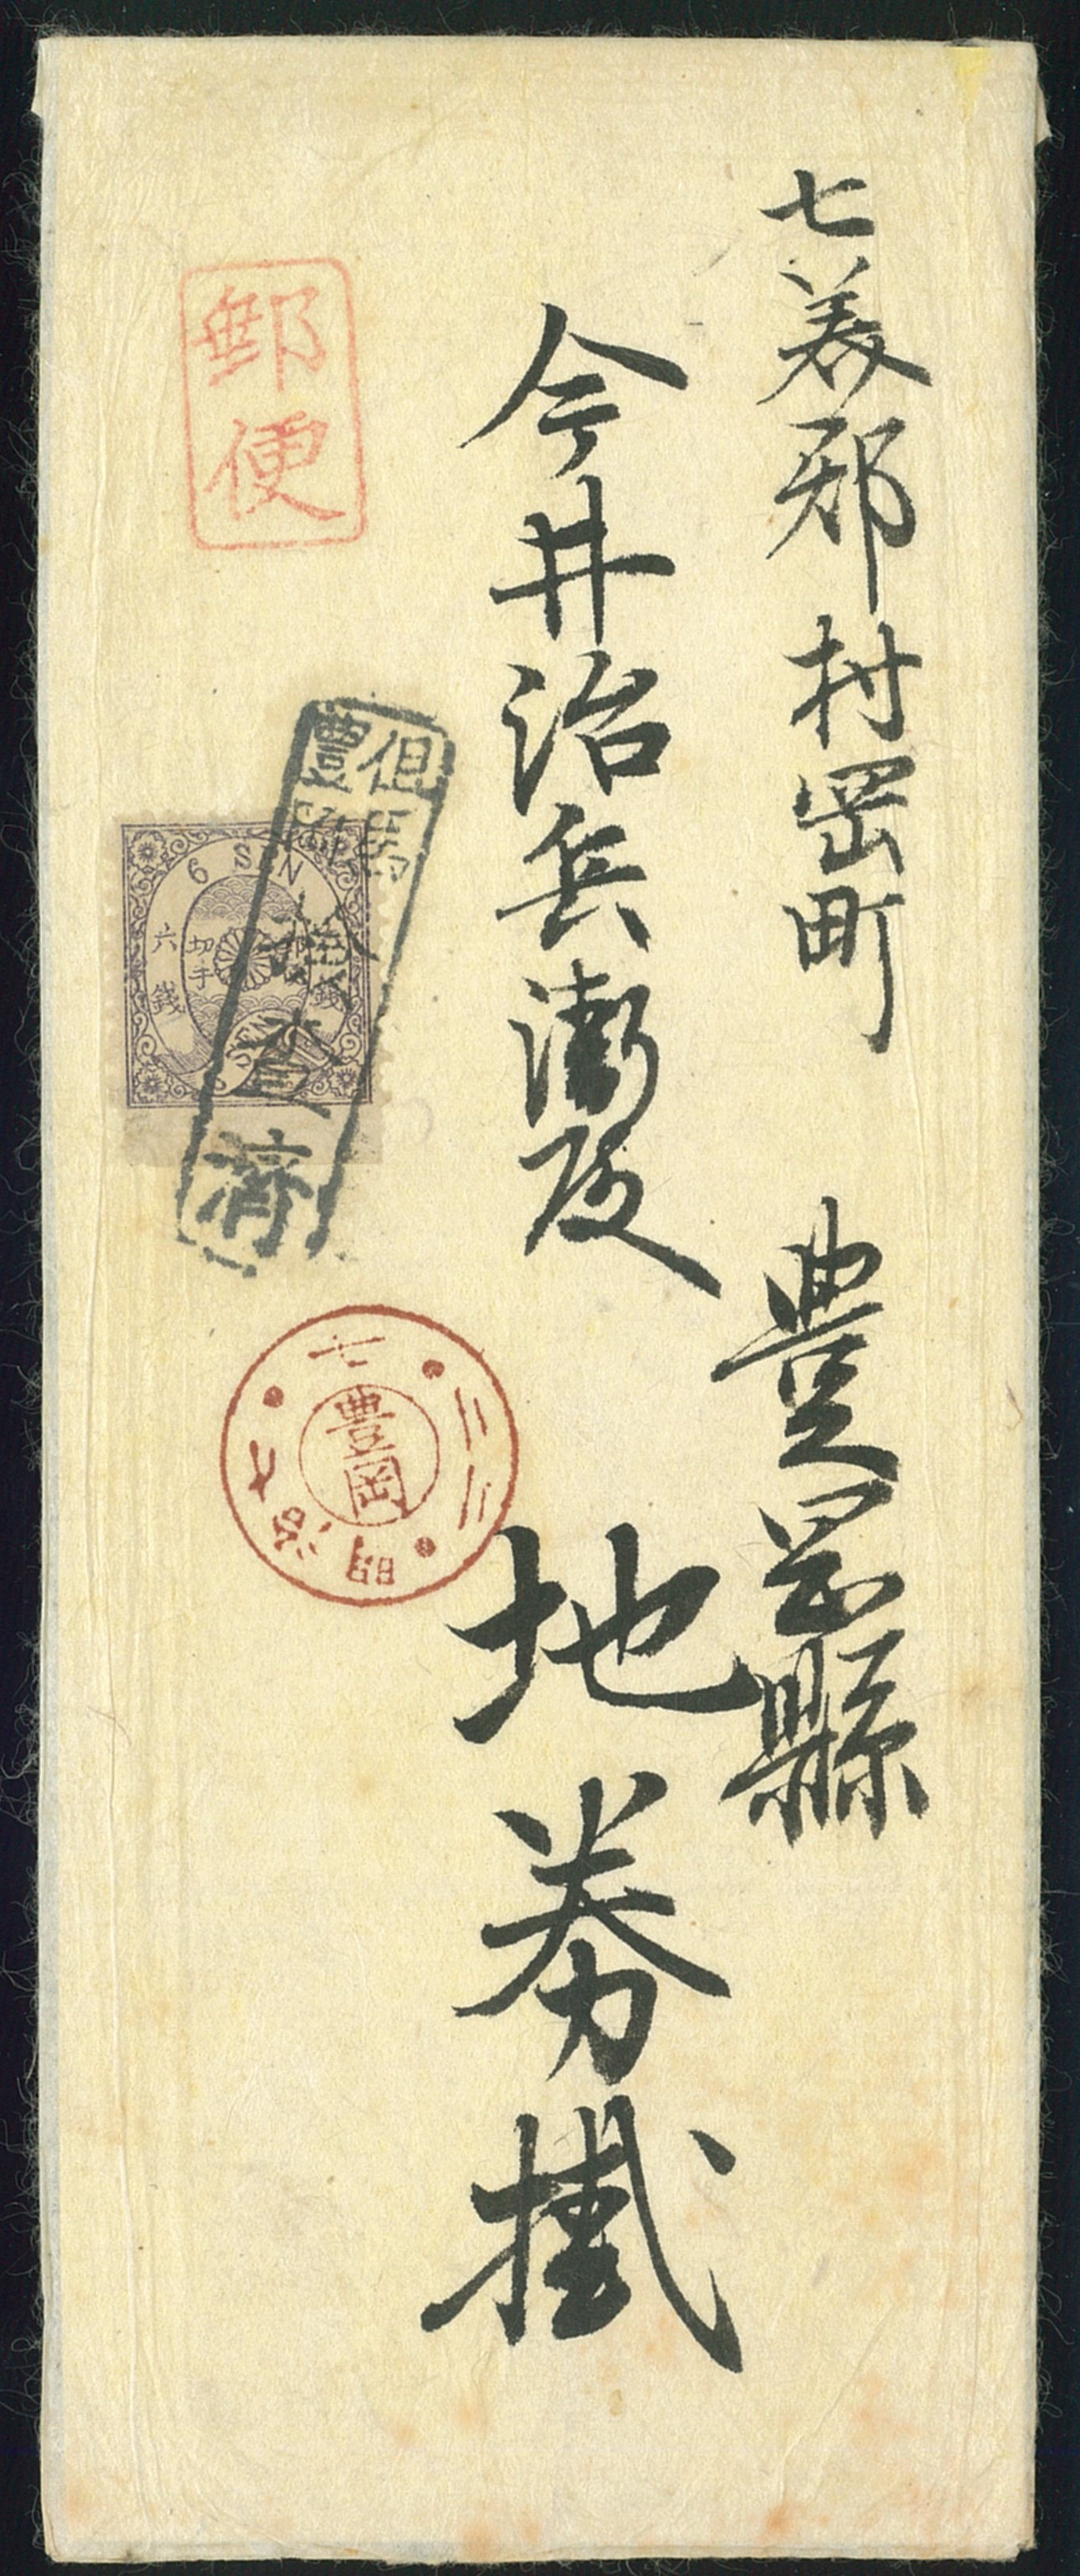 七美郡村岡町
豊岡縣
今井治兵衛殿
地券掛
郵便
但馬
豊岡
檢查濟
6 SEN
六銭
切手
豊岡
明治七
七
二三